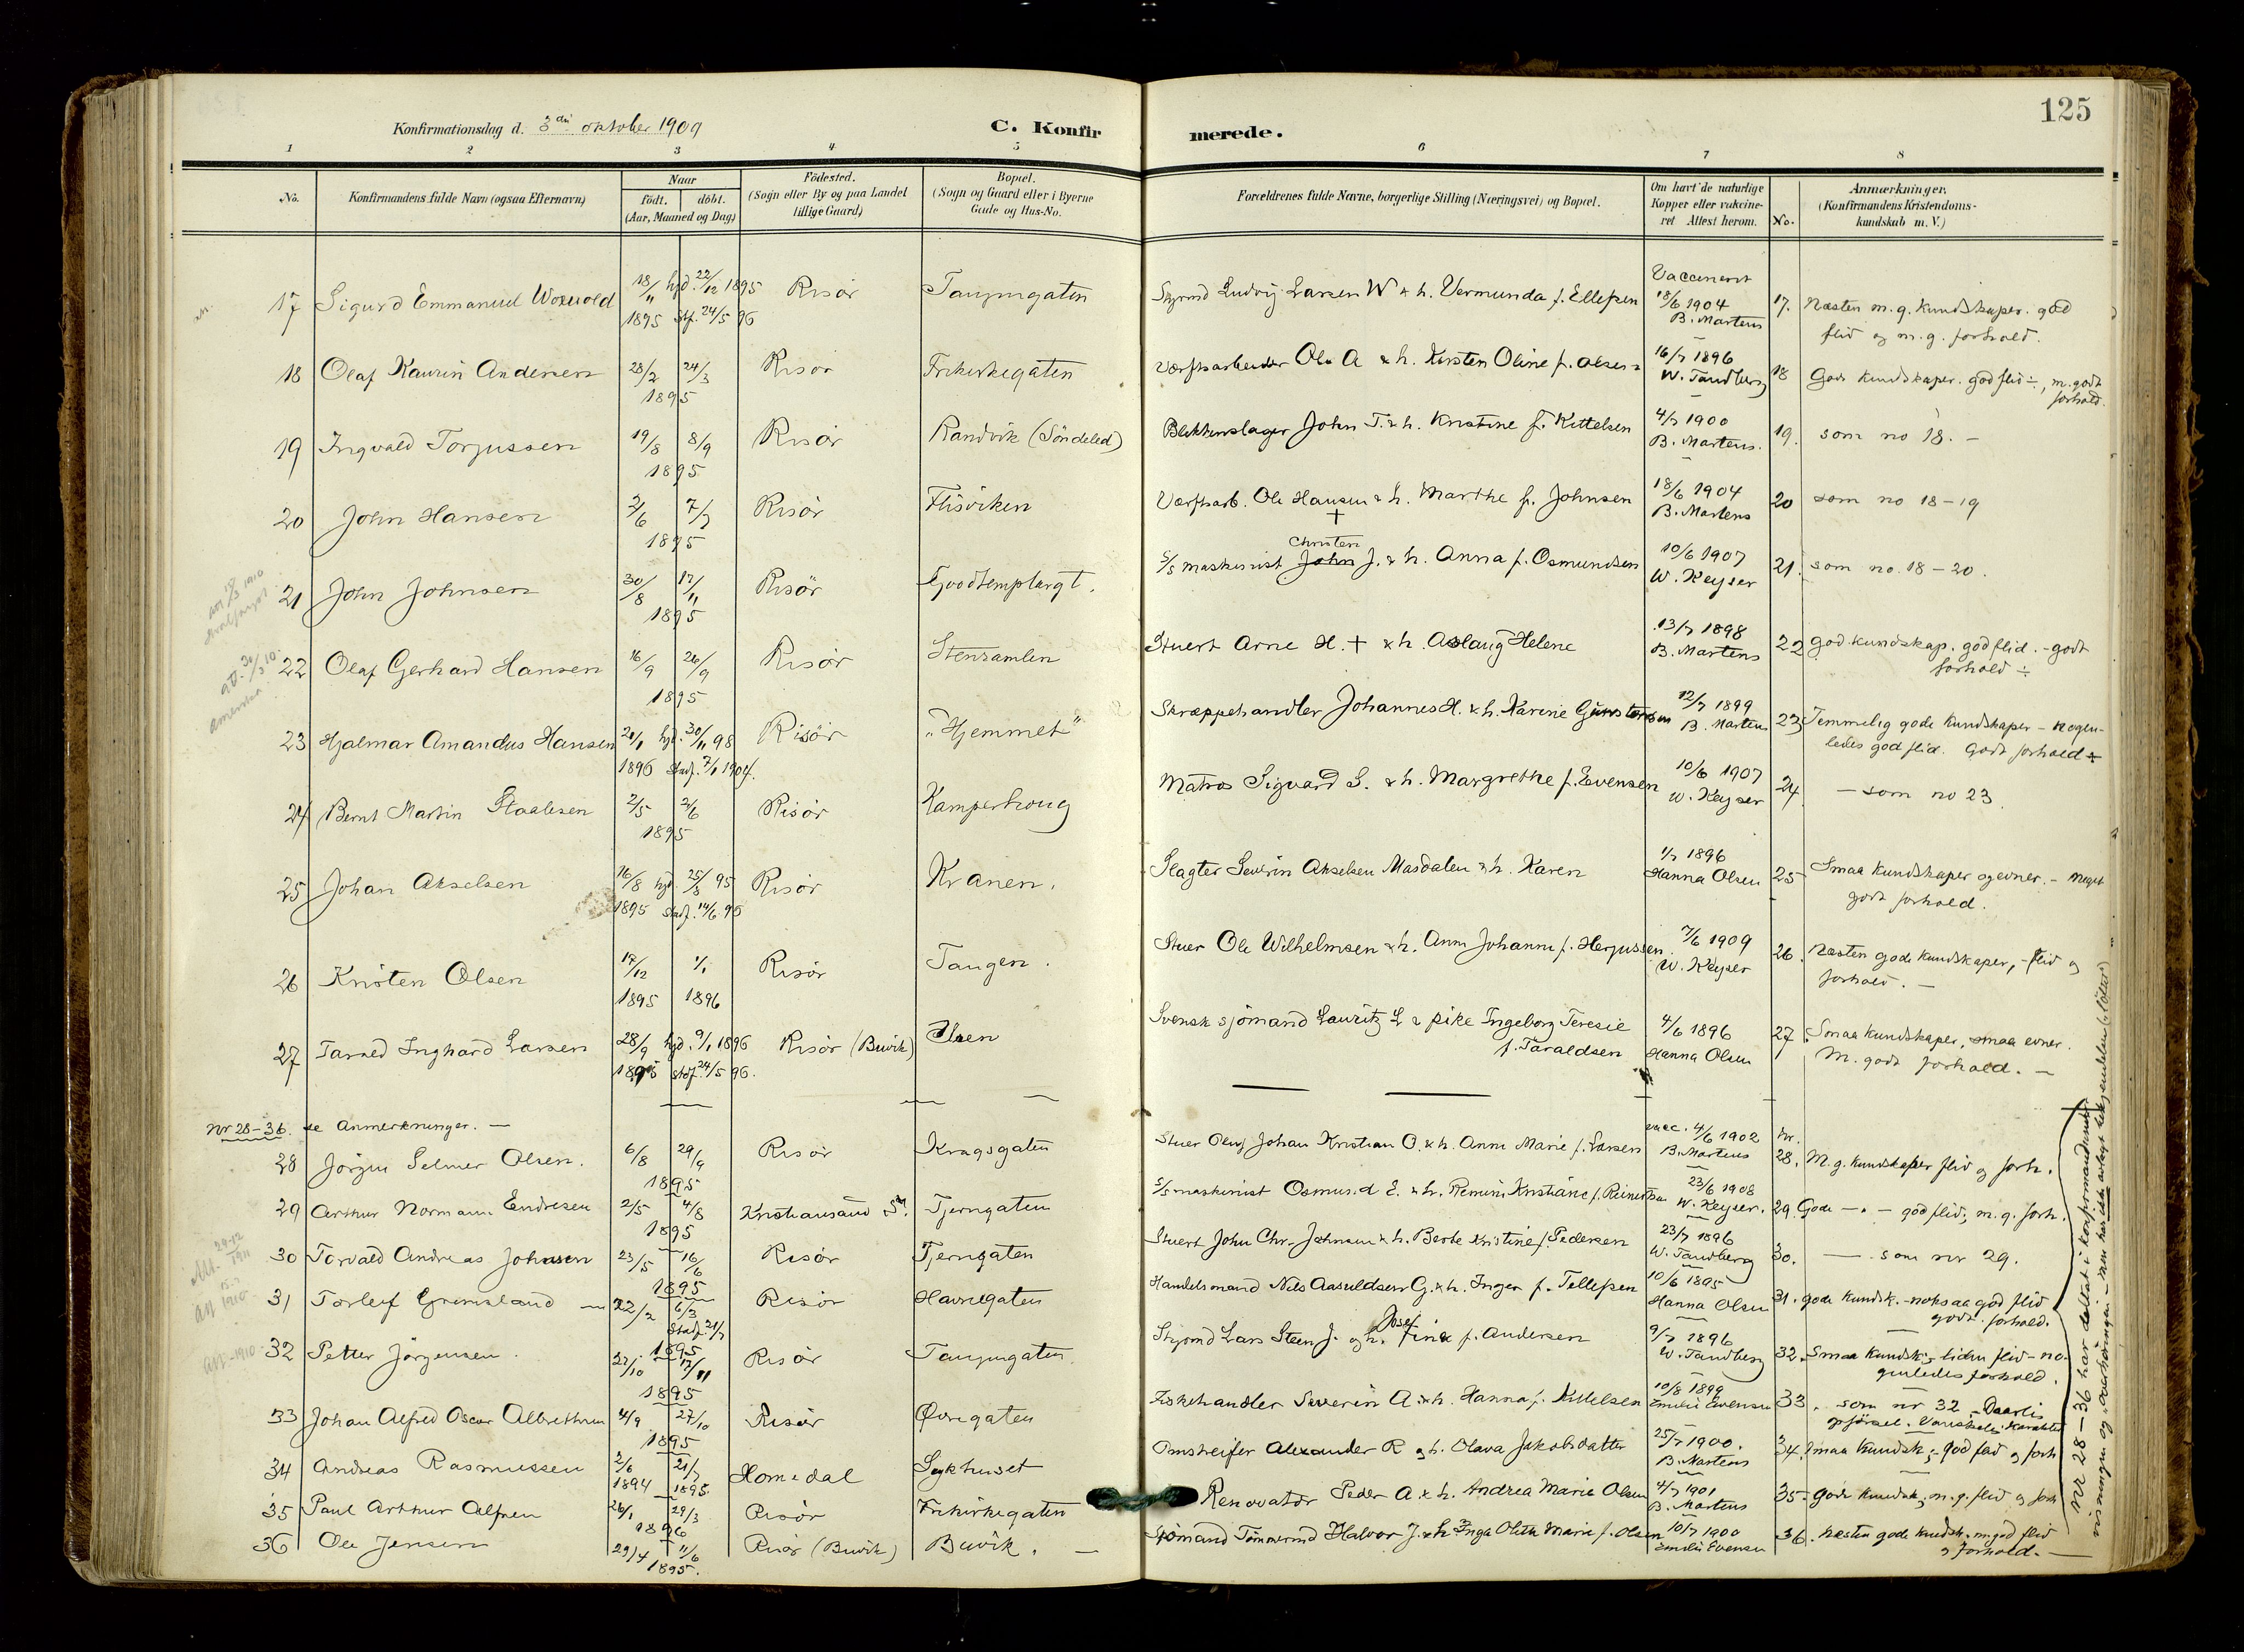 125
Konfirmationsdag d. 3die oktober 1909
C. Konfirmerede.
1 2 3 4 5 6 7 8
No.
Konfirmandens fulde Navn (ogsaa Efternavn)
Naar
födt. döbt.
(Aar, Maaned og Dag)
Födested.
(Sogn eller By og paa Landet
tillige Gaard)
Bopæl.
(Sogn og Gaard eller i Byerne
Gade og Hus-No.
Forældrenes fulde Navne, borgerlige Stilling (Næringsvei) og Bopæl.
Om havt de naturlige
Kopper eller vakcine-
ret Attest herom.
No.
Anmærkninger.
(Konfirmandens Kristendoms-
kundskab m. V.)
17 Sigurd Emmanuel Woxvold 18/11 1895 hjd. 22/12 1895 Stf. 24/5 96 Risör Tangengaten Styrmd Ludvig Larsen W & h. Vermunda f. Ellefsen Vaccineret 18/6 1904 B. Martens 17. Næsten m. g. kundskaper. god
flid og m. g. forhold.
18 Olaf Kaurin Andersen 28/2 24/3 1895 Risör Frikirkegaten Værftsarbeider Ole A & h. Kirsten Oline f. Olsen 16/7 1896 W. Tandberg 18 Gode kundskaper. god flid ÷, m. godt
forhold.
19 Ingvald Torjussen 19/8 8/9 1895 Risör Randvik (Söndeled) Blikkenslager John T. & h. Kristine f. Kittelsen 4/7 1900 B. Martens. 19. som no 18. —
20 John Hansen 2/6 7/7 1895 Risör Flisviken Værftsarb. Ole Hansen & h. Marthe f. Johnsen 18/6 1904 B. Martens 20 som no 18-19
21 John Johnsen 30/8 17/11 1895 Risör Goodtemplargt. S/s maskinist John Christen J. & h. Anna f. Osmundsen 10/6 1907 W. Keyser 21. som no. 18-20.
22 Olaf Gerhard Hansen 16/9 26/9 1895 Risör Stensamlin Stuert Arne H. + & h. Aslaug Helene 13/7 1898 B. Martens 22 god kundskap. god flid. - godt
forhold ÷
23 Hjalmar Amandus Hansen 21/1 1896 hjd. 30/11 98 Stadf. 7/1 1904. Risör "Hjemmet" Skræppehandler Johannes H. & h. Karine Gunstensen 12/7 1899 B. Martens 23 Temmelig gode kundskaper - nogen-
ledes god flid. Godt forhold ÷
24 Bernt Martin Staalesen 2/5 2/6 1895 Risör Kamperhoug Matros Sigvard S. & h. Margrethe f. Evensen 10/6 1907 W. Keyser 24. — som no 23.
25 Johan Akselsen 16/8 1895 hjd. 25/8 95 stadf. 14/6 96 Risör Kranen. Slagter Severin Akselsen Masdalen & h. Karen 1/7 1896 Hanna Olsen 25 Smaa kundskaper og evner. - meget
godt forhold.
26 Kristen Olsen 17/12 1895 1/1 1896 Risör Tangen. Stuer Ole Wilhelmsen & h. Anne Johanne f. Herjussen. 7/6 1909 W. Keyser 26. Næsten gode kundskaper, - flid og
forhold. —
27 Tarald Inghard Larsen 28/9 1895 hjd. 9/1 1896 stdf. 24/5 96. Risör (Buvik) Svensk sjömand Lauritz L & pike Ingeborg Teresie
f. Taraldsen 4/6 1896 Hanna Olsen 27. Smaa kundskaper, smaa evner.
M. godt forhold. —
Nr 28-36. se Anmerkninger. —
28 Jörgen Selmer Olsen. 6/8 29/9 1895 Risör Kragsgaten Stuer Oluf Johan Kristian O. & h. Anne Marie f. Larsen vacc. 4/6 1902 B. Martens Nr. 28. M. g. kundskaper flid og forh.
29 Arthur Normann Endresen 2/5 4/8 1895 Kristiansand S. Tjerngaten S/s maskinist Osmund E. & h. f. Reinertsen 23/6 1908 W. Keyser. 29. Gode — " — god flid, m. g. forh.
30 Torvald Andreas Johnsen 23/5 16/6 1895 Risör Tjerngaten Stuert John Chr. Johnsen & h. Berte Kristine f. Pedersen 23/7 1896 W. Tandberg 30. — som nr 29.
31 Torleif Grimsland 22/2 6/3 Stadf. 21/7 1895 Risör Havnegaten Handelsmand Nils Aasuldsen G. & h. Inger f. Tellefsen 10/6 1895 Hanna Olsen 31. gode kundsk. - noksaa god flid
godt forhold.
32 Petter Jörgensen. 22/10 17/11 1895 Risör Tangengaten. Styrmd Lars Steen J. og h. Josefine f. Andersen 9/7 1896 W. Tandberg 32. Smaa kundsk; - liden flid - no-
genledes forhold.
33 Johan Alfred Oscar Albrethsen 4/9 27/10 1895 Risör Øvregaten Fiskehandler Severin A. & h. Hanna f. Kittelsen 10/8 1899 Emilie Evensen 33. som nr 32. Daarlig
opförsel. Vanskelig karakter
34 Andreas Rasmussen 2/6 1894 21/7 1895. Homedal Sykhuset Omstreifer Alexander R og h. Olava Jakobsdatter 25/7 1900. B. Martens 34. Smaa kundsk; - god flid og forh
35 Paul Arthur Alfsen 26/1 29/3 1896 Risör Frikirkegaten Renovatör Peder A. & h. Andrea Marie Olsen 4/7 1901 B. Martens 35. gode kundsk; m. g. flid og forh
36 Ole Jensen 29/4 11/6 1895. Risör (Buvik) Buvik. — Sjömand Tömmermd Halvor J. & h. Inga Olette Marie f. Olsen 10/7 1900 Emilie Evensen 36. næsten gode kundsk. m god flid
og forhold. —
Nr 28-36 har deltat i konfirmandunder-
visningen og overhöringen - men har ikke avlagt bekjendelsen (löftet)